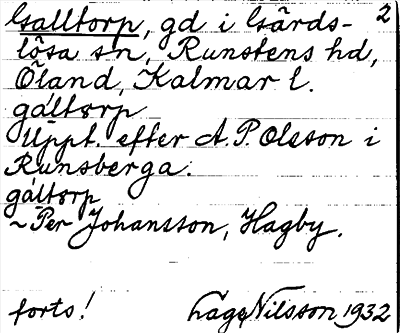 Galltorp, gd i Gärds- 2
lösa sn, Runstens hd,
Öland, Kalmar l.
gáltɔrp
Uppt. efter A. P. Olsson i
Runsberga.
gáltɔrp
~ Per Johansson, Hagby.
forts! Lage Nilsson 1932